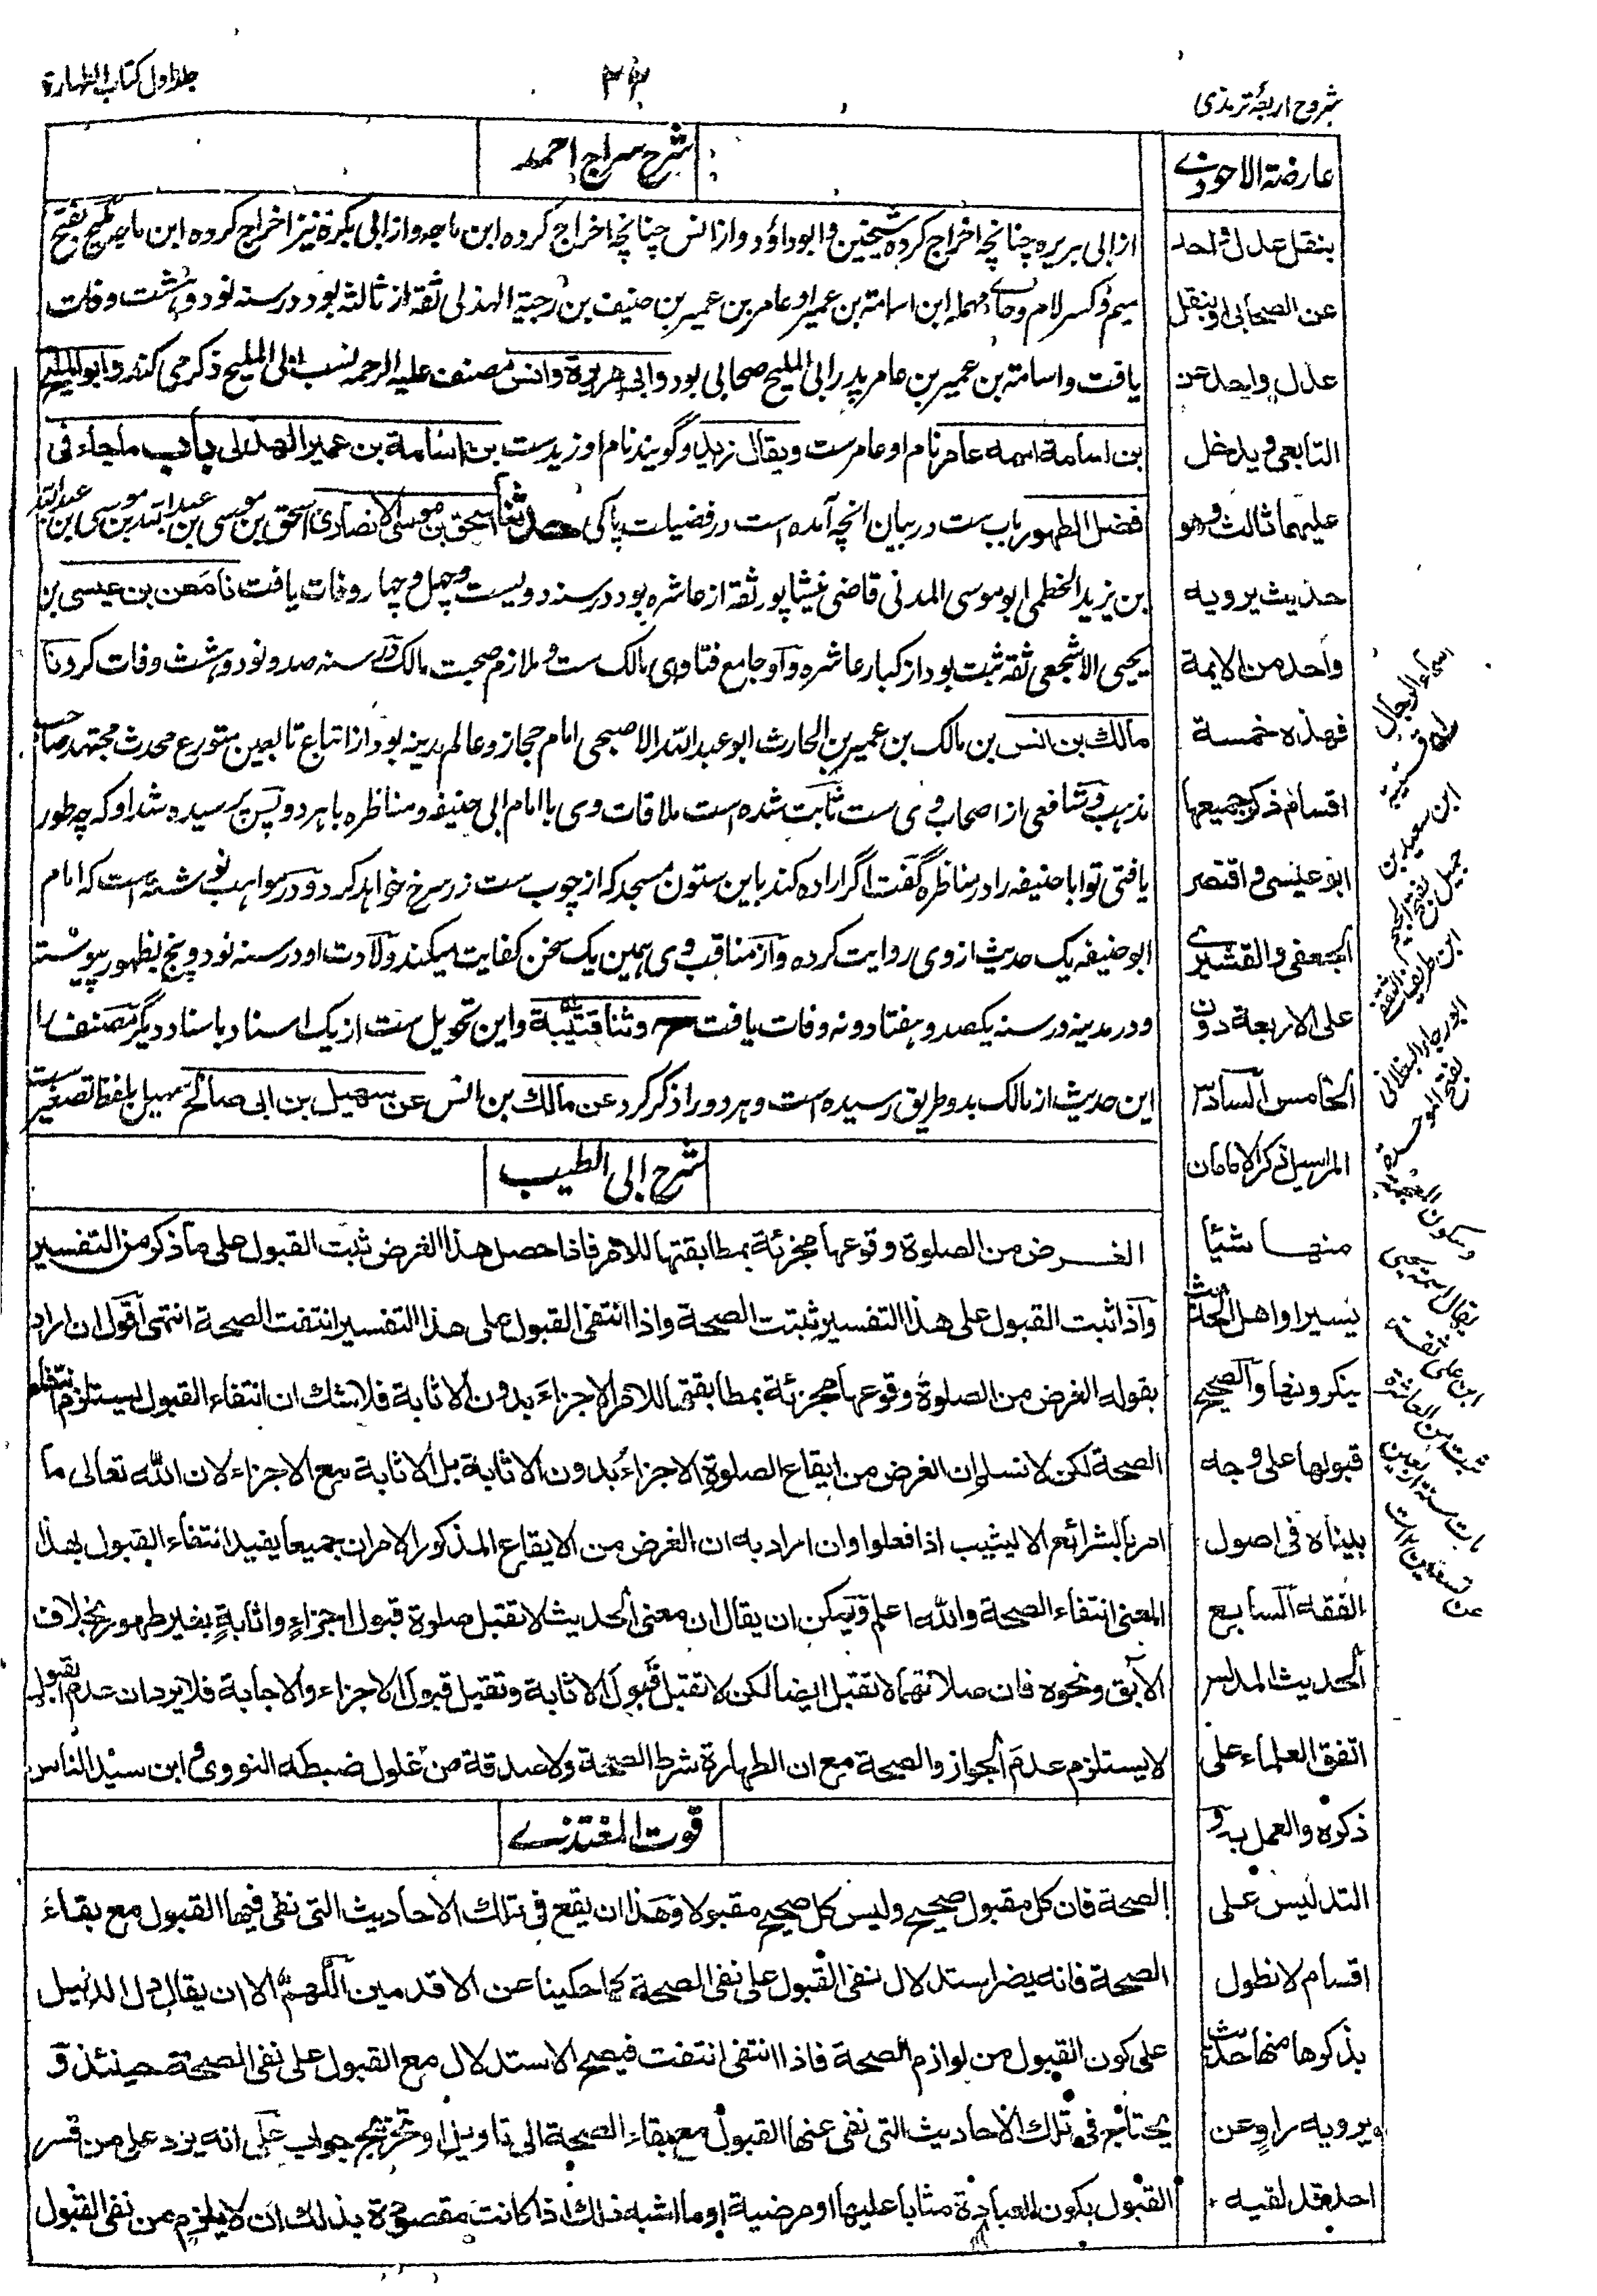 شروح اربعۂ ترمذی
۳۳
جلد اول کتاب الطهارة
عارضة الاحوذے
بنقل عدل واحد
عن الصحابی او بنقل
عدل واحد عن
التابعی و یدخل
علیهما ثالث وهو
حدیث یرویه
واحد من الایمة
فهذه خمسة
اقسام ذکر جمیعها
ابو عیسی و اقتصر
الجعفی والقشیرے
علی الاربعة دون
الخامس السادس
المراسیل ذکر الامامان
منها شیئا
یسیرا واهل الحدیث
ینکرونها والصحیح
قبولها علی وجه
بیناه فی اصول
الفقه السابع
الحدیث المدلس
اتفق العلماء علی
ذکره والعمل به و
التدلیس علی
اقسام لا نطول
بذکرها منها حدیث
یرویه راو عن
احد قد لقیه
شرح سراج احمد
از ابی هریره چنانچه اخراج کرده شیخین و ابوداؤد و از انس چنانچه اخراج کرده ابن ماجه و از ابی بکرة نیز اخراج کرده ابن ماجه ملیح بفتح
میم و کسر لام و حاے مهمله ابن اسامة بن عمیر او عامر بن عمیر بن حنیف بن ناجیة الهذلی ثقة از ثالثة بود در سنه نود و هشت وفات
یافت و اسامة بن عمیر بن عامر پدر ابی الملیح صحابی بود وابی هریرة وانس مصنف علیه الرحمه نسب ابی الملیح ذکر می کند وابو الملیح
بن اسامة اسمه عامر نام او عامرست ویقال زید و گویند نام او زیدست بن اسامة بن عمیر الهذلی باب ماجاء فی
فضل الطهور باب ست در بیان انچه آمده است در فضیلت پاکی حدثنا اسحق بن موسی الانصاری اسحق بن موسی بن عبد الله بن موسی بن عبد الله
بن یزید الخطمی ابو موسی المدنی قاضی نیشاپور ثقة از عاشره بود در سنه دو لیست و چهل و چهار وفات یافت نا معن بن عیسی بن
یحیی الاشجعی ثقه ثبت بود از کبار عاشره و او جامع فتاوی مالک ست و ملازم صحبت مالک در سنه صد و نود و هشت وفات کرد نا
مالک بن انس بن مالک بن عمیر بن الحارث ابو عبد الله الاصبحی امام حجاز و عالم مدینه بود از اتباع تابعین متورع محدث مجتهد صاحب
مذهب و شافعی از اصحاب وی ست ثابت شده است ملاقات وی با امام ابی حنیفه و مناظره با هر دو پس پرسیده شد او که چه طور
یافتی تو ابا حنیفه را در مناظره گفت اگر اراده کند باین ستون مسجد که از چوب ست زر سرخ خواهد کرد و در مواهب نوشته است که امام
ابو حنیفه یک حدیث از وی روایت کرده و از مناقب وی همین یک سخن کفایت میکند ولادت او در سنه نود و پنج بظهور پیوسته
و در مدینه در سنه یکصد و هفتاد و نه وفات یافت ح وثنا قتیبة و این تحویل ست از یک اسناد باسناد دیگر مصنف را
این حدیث از مالک بدو طریق رسیده است و هر دو را ذکر کرد عن مالک بن انس عن سهیل بن ابی صالح سهیل بلفظ تصغیر ست
شرح ابی الطیب
الغرض من الصلوة وقوعها مجزئة بمطابقتها للامر فاذا حصل هذا الغرض ثبت القبول علی ما ذکر من التفسیر
واذا ثبت القبول علی هذا التفسیر ثبتت الصحة واذا انتفی القبول علی هذا التفسیر انتفت الصحة انتهی اقول ان اراد
بقوله الغرض من الصلوة وقوعها مجزئة بمطابقتها للامر الاجزاء بدون الاثابة فلا شک ان انتفاء القبول یستلزم انتفاء
الصحة لکن لا نسلم ان الغرض من ایقاع الصلوة الاجزاء بدون الاثابة بل الاثابة مع الاجزاء لان الله تعالی ما
امر بالشرائع الا لیثیب اذا فعلوا وان اراد به ان الغرض من الایقاع المذکور الامران جمیعا یفید انتفاء القبول بهذا
المعنی انتفاء الصحة والله اعلم ویمکن ان یقال ان معنی الحدیث لا تقبل صلوة قبول اجزاء واثابة بغیر طهور بخلاف
الآبق ونحوه فان صلاتهما لا تقبل ایضا لکن لا تقبل قبول الاثابة وتقبل قبول الاجزاء والاجابة فلا یرد ان عدم القبول
لا یستلزم عدم الجواز والصحة مع ان الطهارة شرط الصحة ولا صدقة من غلول ضبطه النووی وابن سید الناس
قوت المغتذے
الصحة فان کل مقبول صحیح ولیس کل صحیح مقبولا وهذا ان یقع فی تلک الاحادیث التی نفی فیها القبول مع بقاء
الصحة فانه یضر استدلال نفی القبول علی نفی الصحة کما حکینا عن الاقدمین اللهم الا ان یقال دل الدلیل
علی کون القبول من لوازم الصحة فاذا انتفی انتفت فیصح الاستدلال مع القبول علی نفی الصحة حینئذ و
یحتاج فی تلک الاحادیث التی نفی عنها القبول مع بقاء الصحة الی تاویل او تخریج جواب علی انه یرد علی من فسر
القبول بکون العبادة مثابا علیها او مرضیة او ما اشبه ذلک اذا کانت مقصودة بذلک ان لا یلزم من نفی القبول
اسماء الرجال
قتیبة
ابن سعید بن
جمیل بفتح الجیم
ابن طریف الثقفی
ابو رجاء البغلانی
بفتح الموحدة
وسکون المعجمة
یقال اسمه یحیی
ثبت من العاشرة
مات سنة اربعین
عن تسعین سنة